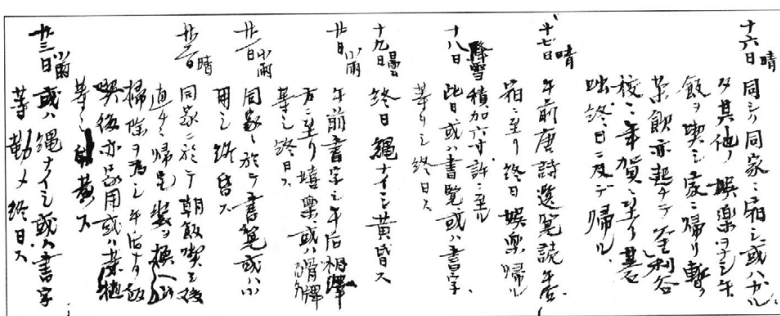 十六日 晴 同シク同家ニ宿シ或ハカル
タ其他ノ娯楽ヲナシ午
飯ヲ喫シ家ニ帰リ暫ク
茶飲亦起チテ 谷
校ニ年賀ニ至リ碁
終日ニ及デ帰ル
十七日 晴 午前唐詩選覧読午后
ニ至リ終日娯楽帰ル
十八日 降雪積加六寸許ニ至ル
此日或ハ書覧或ハ書字
等ヲシ終日ス
十九日 曇 終日縄ナイシ黄昏ス
廿日 小雨 午前書字シ午后
方ニ至リ 楽或ハ
等シ終日ス
廿一日 小雨 同家ニ於テ書覧或ハ小
用シ終昏ス
廿二日 晴 同家ニ於テ朝飯喫シ後
直チニ帰宅 装ヲ換
掃除ヲ為シ午后夕飯
喫後亦 用或ハ
等シ黄昏ス
廿三日 小雨 或ハ縄ナイシ或ハ書字
等勤メ終日ス